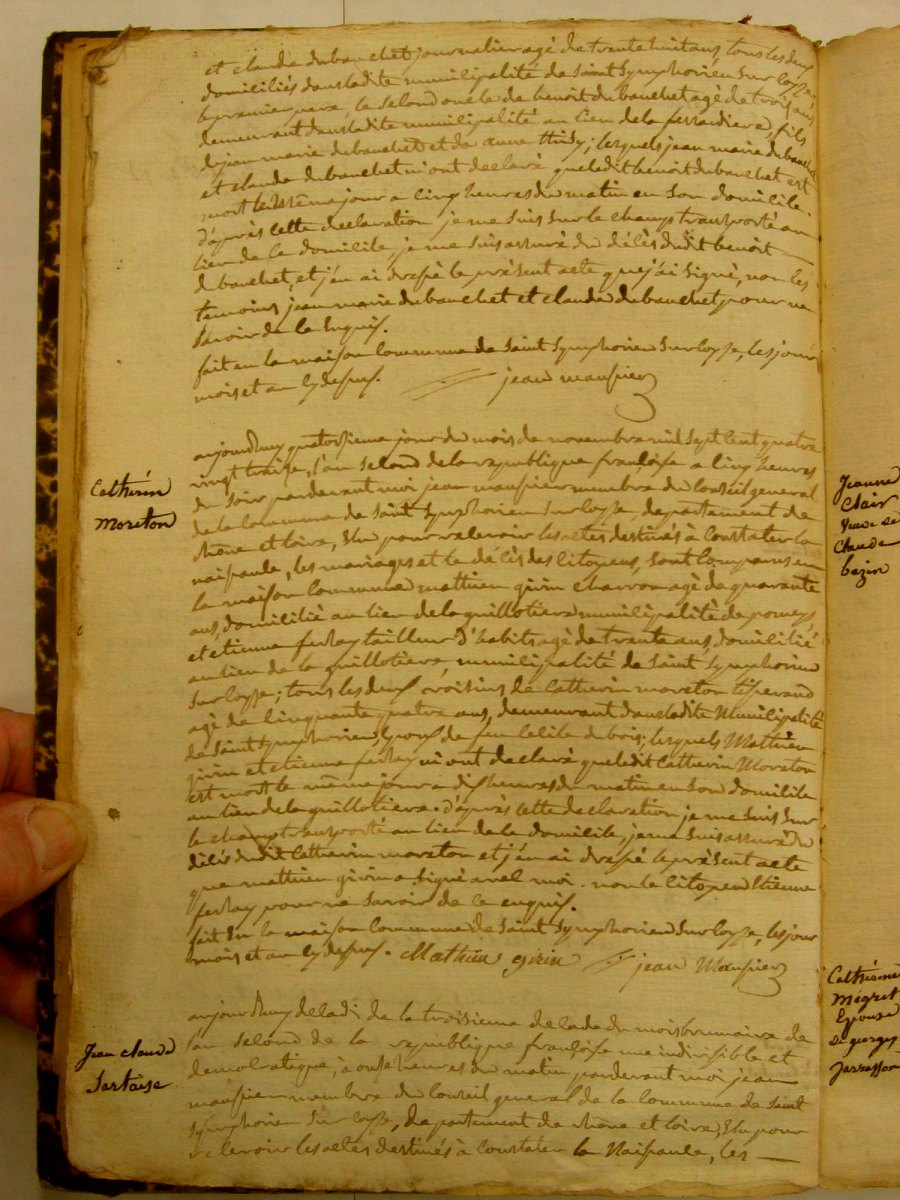 et claude dubanchet journalier agé de trente huit ans, tous les deux
domiciliés dans ladite municipalité de saint symphorien sur coyse
le premier pere, le second oncle de benoit dubanchet agé de trois ans
demeurant dans ladite municipalité au lieu de la ferrandiere, fils
de jean marie dubanchet et de anne thidy; lesquels jean marie dubanchet
et claude dubanchet m'ont declaré que ledit benoit dubanchet est
mort le même jour a cinq heures du matin en son domicile.
d'après cette declaration je me suis sur le champ transporté au
lieu de ce domicile, je me suis assuré du décès dudit benoit
dubanchet, et j'en ai dressé le présent acte que j'ai signé, non les
temoins jean marie dubanchet et claude dubanchet pour ne
savoir de ce enquis.
fait en la maison commune de saint symphorien sur coysse, les jour
mois et an cy dessus. jean maussier
aujourd'huy quatorsieme jour du mois de novembre mil sept cent quatre
vingt treise, l'an second de la republique françoise a cinq heures
du soir pardevant moi jean maussier membre du conseil general
de la commune de saint symphorien sur coysse, departement de
rhône et loire, elu pour recevoir les actes destinés à constater la
naissance, les mariages et le décès des citoyens, sont comparus en
la maison commune matthieu girin charron agé de quarante
ans, domicilié au lieu de la guillotiere municipalité de pomeys
et etienne ferlay tailleur d'habits agé de trente ans, domicilié
au lieu de la guillotiere, municipalité de saint symphorien
sur coysse; tous les deux voisins de Catherin moreton tisserand
agé de cinquante quatre ans, demeurant dans ladite Municipalité
de saint symphorien, epoux de feu cecile dubois; lesquels Matthieu
girin et etienne ferlay m'ont declaré que ledit Catherin Moreton
est mort le même jour a dix heures du matin en son domicile
au lieu de la guillotiere. d'après cette declaration je me suis sur
le champ transporté au lieu de ce domicile, je me suis assuré du
décès dudit Catherin moreton et j'en ai dressé le présent acte
que matthieu girin a signé avec moi. non le citoyen Etienne
ferlay pour ne savoir de ce enquis.
fait en la maison Commune de saint symphorien sur coysse, les jour
mois et an cy dessus. Mathieu girin jean Maussier
aujourd'huy decadi de la troisieme decade du mois brumaire de
l'an second de la republique françoise une indivisible et
democratique, à onse heures du matin pardevant moi jean
maussier membre du Conseil general de la commune de saint
symphorien sur coysse, departement de rhône et loire, elu pour
recevoir les actes destinés à constater la Naissance, les
Catherin
Moreton
Jean claude
Sartaise
Jeanne
Clair
veuve de
Claude
bazin
Catherine
Mégret
Epouse
de georges
Jarrasson